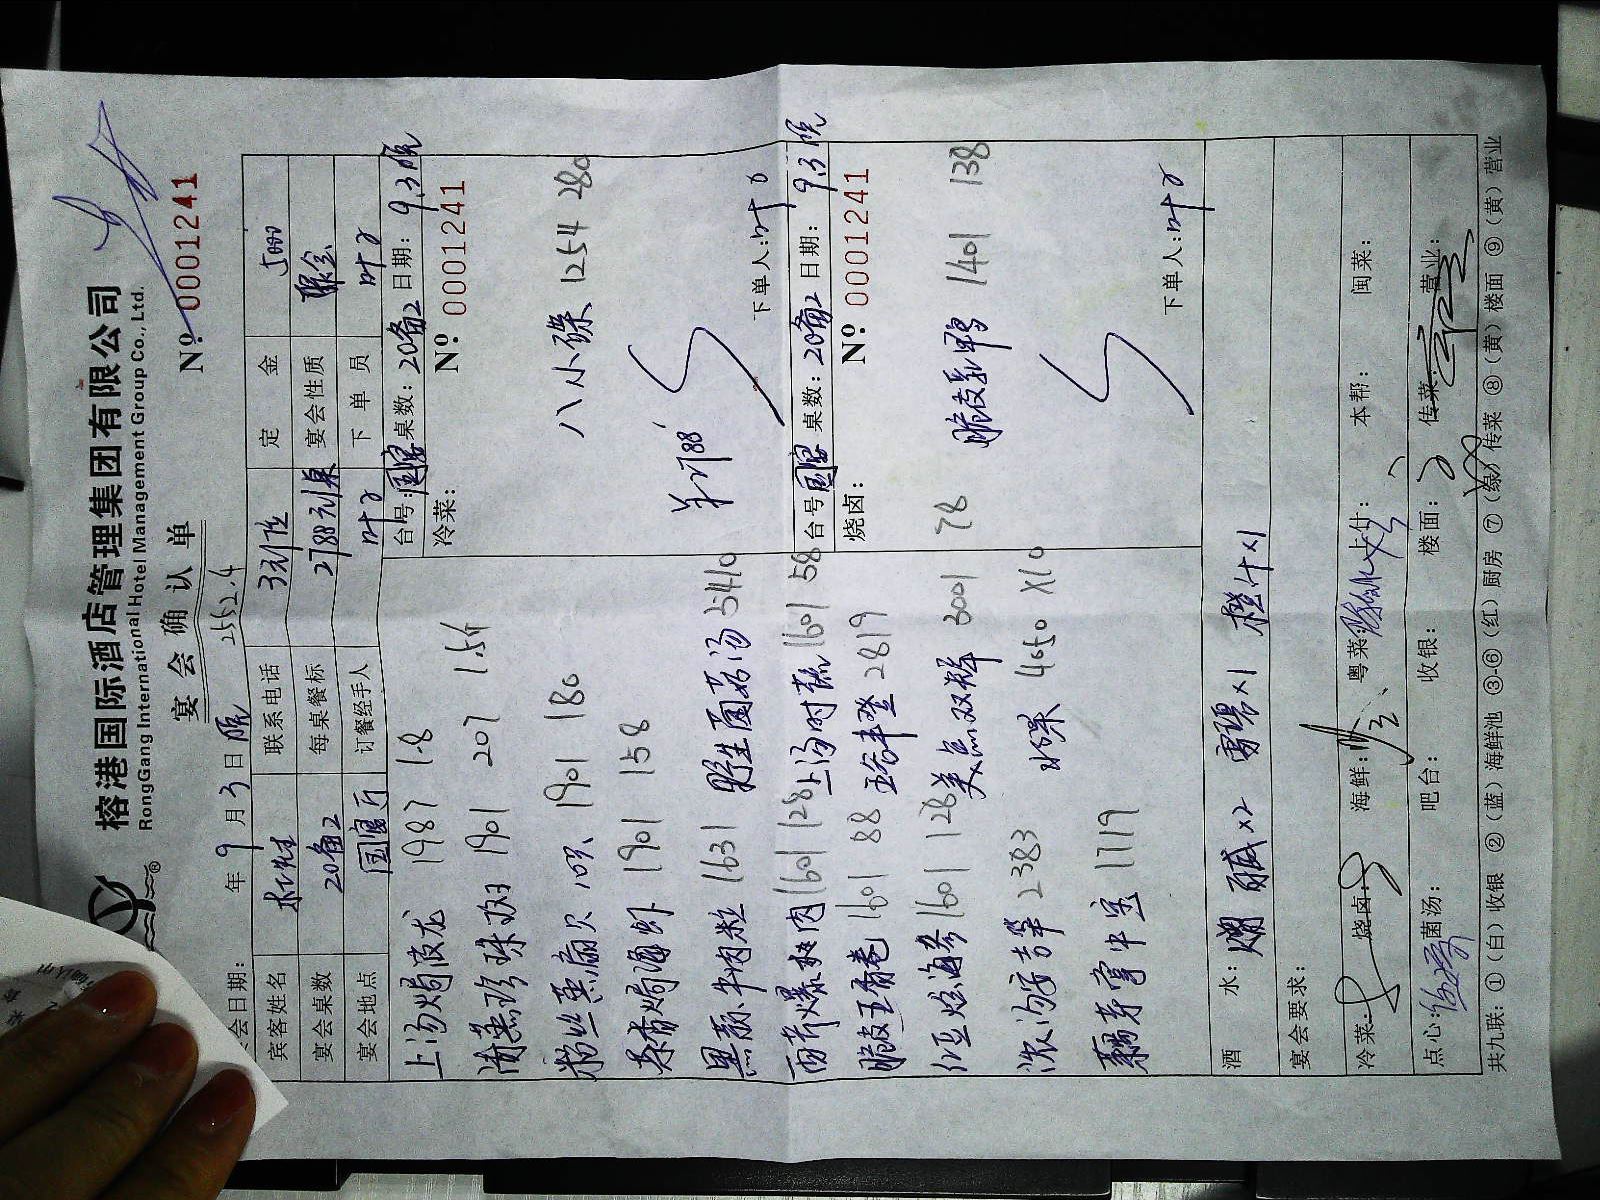 榕港国际酒店管理集团有限公司
RongGang International Hotel Management Group Co., Ltd.
宴会确认单
№ 0001241
2552.4
会日期： 年 9 月 3 日 晚
宾客姓名 联系电话 定金 5000
宴会桌数 20备2 每桌餐标 2788元/桌 宴会性质 聚会
宴会地点 国宴厅 订餐经手人 叶 下单员 叶
台号：国宴 桌数：20备2 日期：9.3晚
冷菜： № 0001241
八小碟 1254 280
下单人：叶
上汤焗波龙 1987 1.8
清蒸珍珠斑 1901 207 1.5斤
粉丝蒸扇贝 10只 1901 180
茶香焗海虾 1901 158
黑蒜牛肉粒 1631
野生菌菇汤 5410
西芹爆爽肉 1601 128
上汤时蔬 1601 58
脆皮五香卷 1601 88
2819
红豆烩海参 1601 126
美点双辉 3001 78
浓汤 2383
水果 4050 X10
1719
台号：国宴 桌数：20备2 日期：9.3晚
烧卤： № 0001241
脆皮乳鸭 1401 138
下单人：叶
酒水： X2 雪碧X1 橙汁X1
宴会要求：
冷菜： 烧卤： 海鲜： 粤菜： 上什： 本帮： 闽菜：
点心： 菌汤： 吧台： 收银： 楼面： 传菜： 营业：
共九联：①(白)收银 ②(蓝)海鲜池 ③-⑥(红)厨房 ⑦(绿)传菜 ⑧(黄)楼面 ⑨(黄)营业